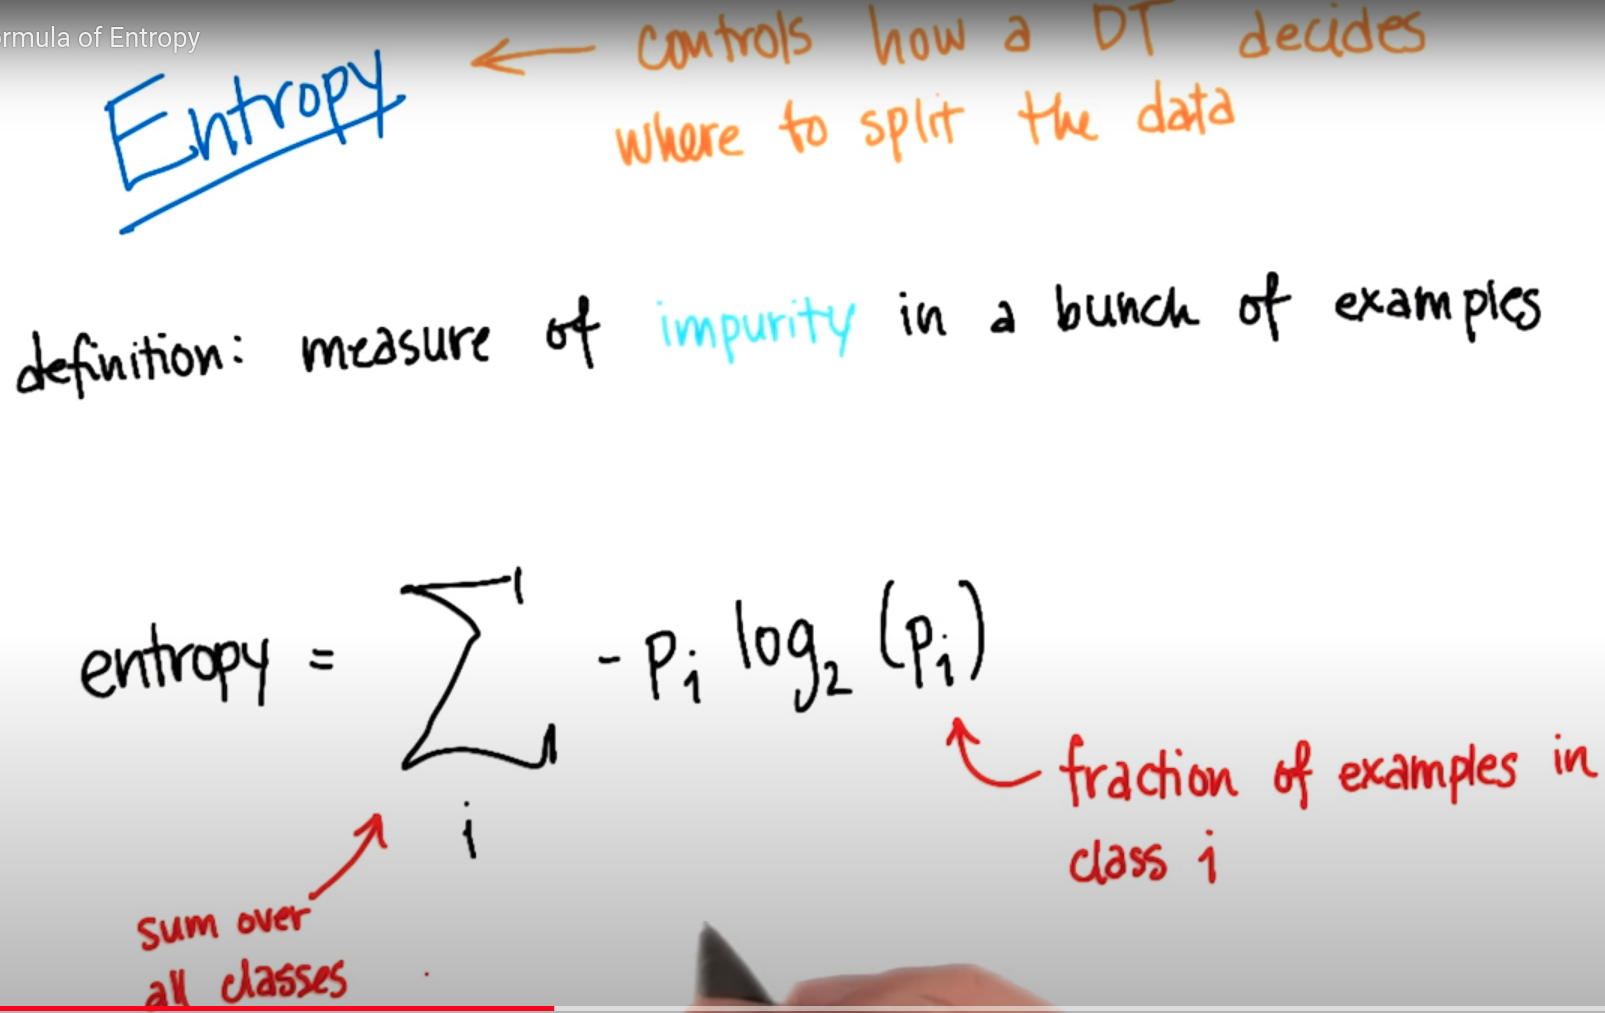 rmula of Entropy
Entropy ← controls how a DT decides
where to split the data
definition: measure of impurity in a bunch of examples
entropy = ∑ - pᵢ log₂ (pᵢ)
i
fraction of examples in
class i
sum over
all classes